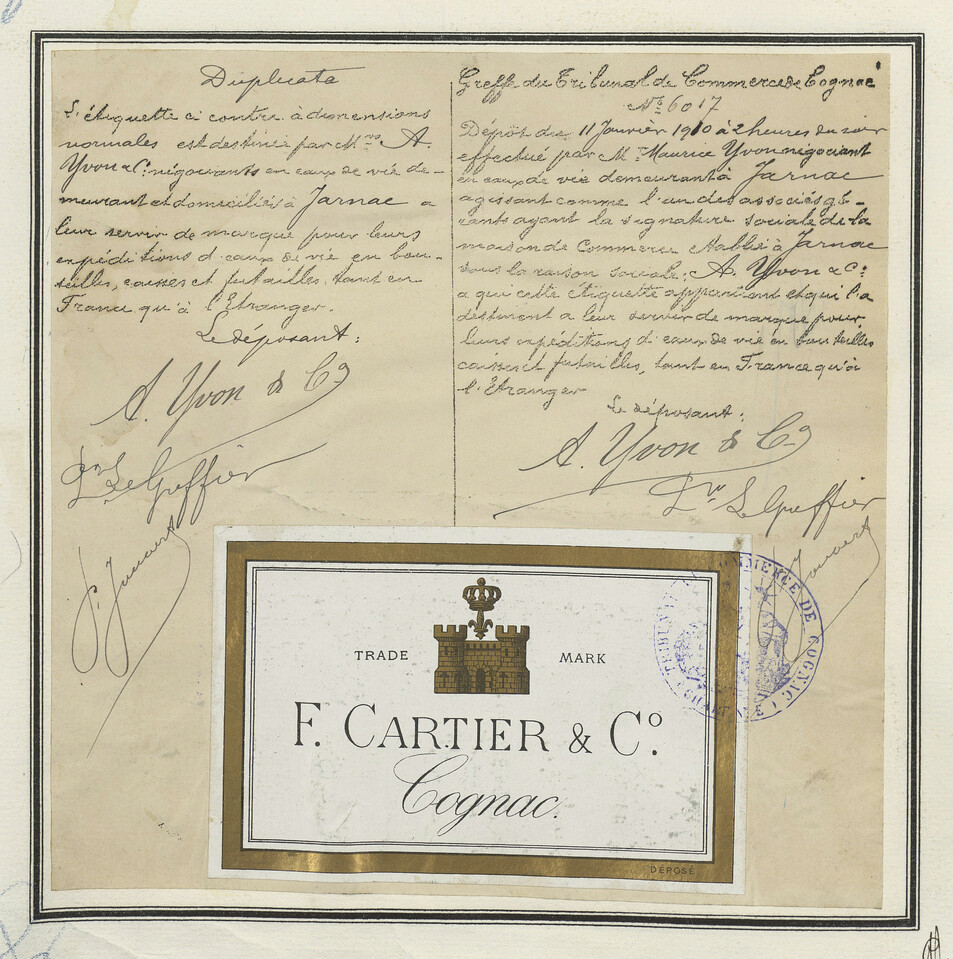 Duplicata
L'étiquette ci contre à dimensions
normales est destinée par Mrs A.
Yvon & Cie négociants en eaux de vie de-
meurant et domiciliés à Jarnac a
leur servir de marque pour leurs
expéditions d'eaux de vie en bou-
teilles, caisses et futailles, tant en
France qu'à l'Etranger.
Le déposant:
A. Yvon & Co
Le Greffier
Greffe du Tribunal de Commerce de Cognac
No 6017
Dépôt du 11 Janvier 1910 à 2 heures du soir
effectué par Mr Maurice Yvon négociant
en eaux de vie demeurant à Jarnac
agissant comme l'un des associés gé-
rants ayant la signature sociale de la
maison de Commerce établie à Jarnac
sous la raison sociale. A. Yvon & Cie
a qui cette étiquette appartient et qui l'a
destinent a leur servir de marque pour
leurs expéditions d'eaux de vie en bouteilles
caisses et futailles, tant en France qu'à
l'Etranger
Le déposant:
A. Yvon & Co
Le Greffier
TRIBUNAL DE COMMERCE DE COGNAC
TRADE MARK
F. CARTIER & Co.
Cognac.
DÉPOSÉ